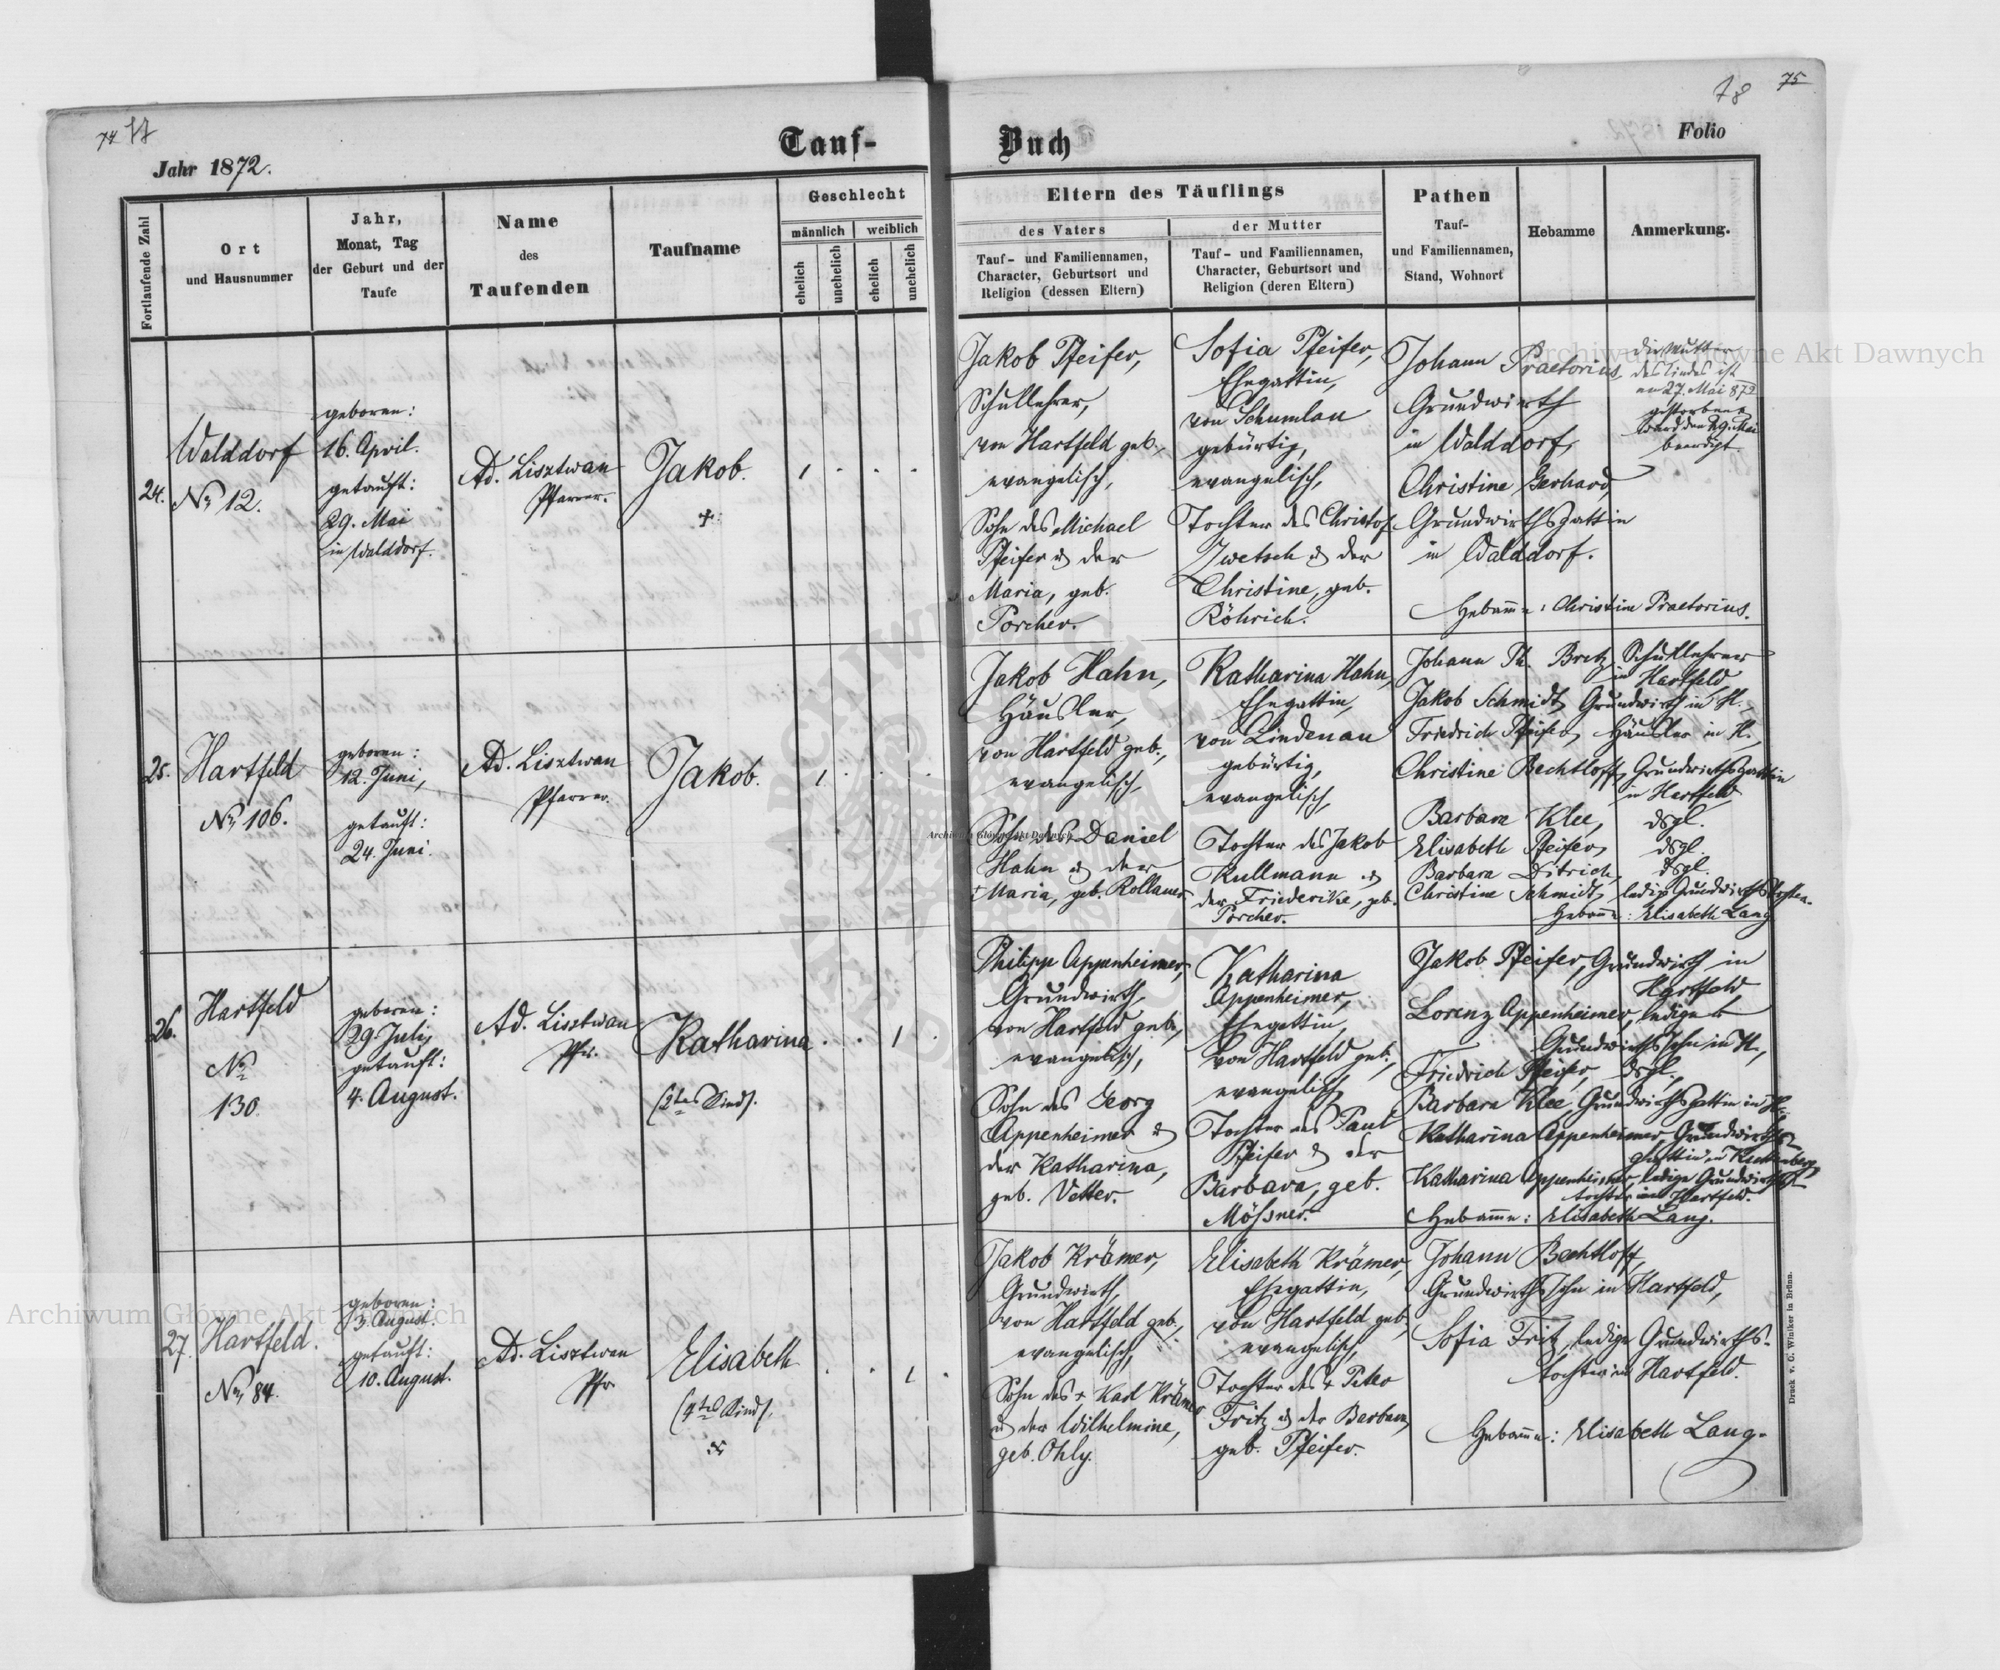 74 77
Tauf-
Jahr 1872.
Fortlaufende Zahl
Ort
und Hausnummer
Jahr,
Monat, Tag
der Geburt und der
Taufe
Name
des
Taufenden
Taufname
Geschlecht
männlich
weiblich
ehelich
unehelich
ehelich
unehelich
24.
Walddorf
No 12.
geboren:
16. April.
getauft:
29. Mai
in Walddorf.
Ad. Lisztwan
Pfarrer.
Jakob.
+
1 . . .
25.
Hartfeld
No 106.
geboren:
12. Juni,
getauft:
24. Juni.
Ad. Lisztwan
Pfarrer.
Jakob.
1 . . .
26.
Hartfeld
No
130.
geboren:
29. Juli,
getauft:
4. August.
Ad. Lisztwan
Pfr.
Katharina
(2tes Kind).
. . 1 .
27.
Hartfeld.
No 84.
geboren:
3. August.
getauft:
10. August.
Ad. Lisztwan
Pfr.
Elisabeth
(4tes Kind).
. . 1 .
78 75
Buch
Folio
Eltern des Täuflings
des Vaters
Tauf- und Familiennamen,
Character, Geburtsort und
Religion (dessen Eltern)
der Mutter
Tauf- und Familiennamen,
Character, Geburtsort und
Religion (deren Eltern)
Pathen
Tauf-
und Familiennamen,
Stand, Wohnort
Hebamme
Anmerkung.
Jakob Pfeifer,
Schullehrer,
von Hartfeld geb.,
evangelisch,
Sohn des Michael
Pfeifer & der
Maria, geb.
Porcher.
Sofia Pfeifer,
Ehegattin,
von Schumlau
gebürtig,
evangelisch,
Tochter des Christof
Zwetsch & der
Christine, geb.
Röhrich.
Johann Praetorius,
Grundwirth
in Walddorf,
Christine Gerhard,
Grundwirthsgattin
in Walddorf.
Hebamme: Christine Praetorius.
die Mutter
des Kindes ist
am 27. Mai 872
gestorben &
ward den 29. Mai
beerdigt
Jakob Hahn,
Häusler,
von Hartfeld geb.,
evangelisch,
Sohn des Daniel
Hahn & der
+ Maria, geb. Rollauer.
Katharina Hahn,
Ehegattin,
von Lindenau
gebürtig,
evangelisch,
Tochter des Jakob
Kullmann &
der Friederike, geb.
Porcher.
Johann Ph. Bretz, Schullehrer
in Hartfeld
Jakob Schmidt, Grundwirth in H.,
Friedrich Pfeifer, Häusler in H.,
Christine Bechtloff, Grundwirthsgattin
in Hartfeld,
Barbara Klee, dsgl.
Elisabeth Pfeifer, dsgl.
Barbara Ditrich, dsgl.
Christine Schmidt, ledige Grundwirthstochter.
Hebamme: Elisabeth Lang
Philipp Appenheimer,
Grundwirth,
von Hartfeld geb.,
evangelisch,
Sohn des Georg
Appenheimer &
der Katharina,
geb. Vetter.
Katharina
Appenheimer,
Ehegattin,
von Hartfeld geb.,
evangelisch,
Tochter des Paul
Pfeifer & der
Barbara, geb.
Mößner.
Jakob Pfeifer, Grundwirth in
Hartfeld
Lorenz Appenheimer, lediger
Grundwirthssohn in H.,
Friedrich Pfeifer, dsgl.,
Barbara Klee, Grundwirthsgattin in H.
Katharina Appenheimer, Grundwirths-
gattin in
Katharina Appenheimer, ledige Grundwirths-
tochter in Hartfeld.
Hebamme: Elisabeth Lang.
Jakob Krämer,
Grundwirth,
von Hartfeld geb.,
evangelisch,
Sohn des + Karl Krämer
& der Wilhelmine,
geb. Ohly.
Elisabeth Krämer,
Ehegattin,
von Hartfeld geb.,
evangelisch,
Tochter des + Peter
Fritz & der Barbara,
geb. Pfeifer.
Johann Bechtloff,
Grundwirthssohn in Hartfeld,
Sofia Fritz, ledige Grundwirths-
tochter in Hartfeld.
Hebamme: Elisabeth Lang.
Druck v. C. Winiker in Brünn.
Archiwum Główne Akt Dawnych
Archiwum Główne Akt Dawnych
Archiwum Główne Akt Dawnych